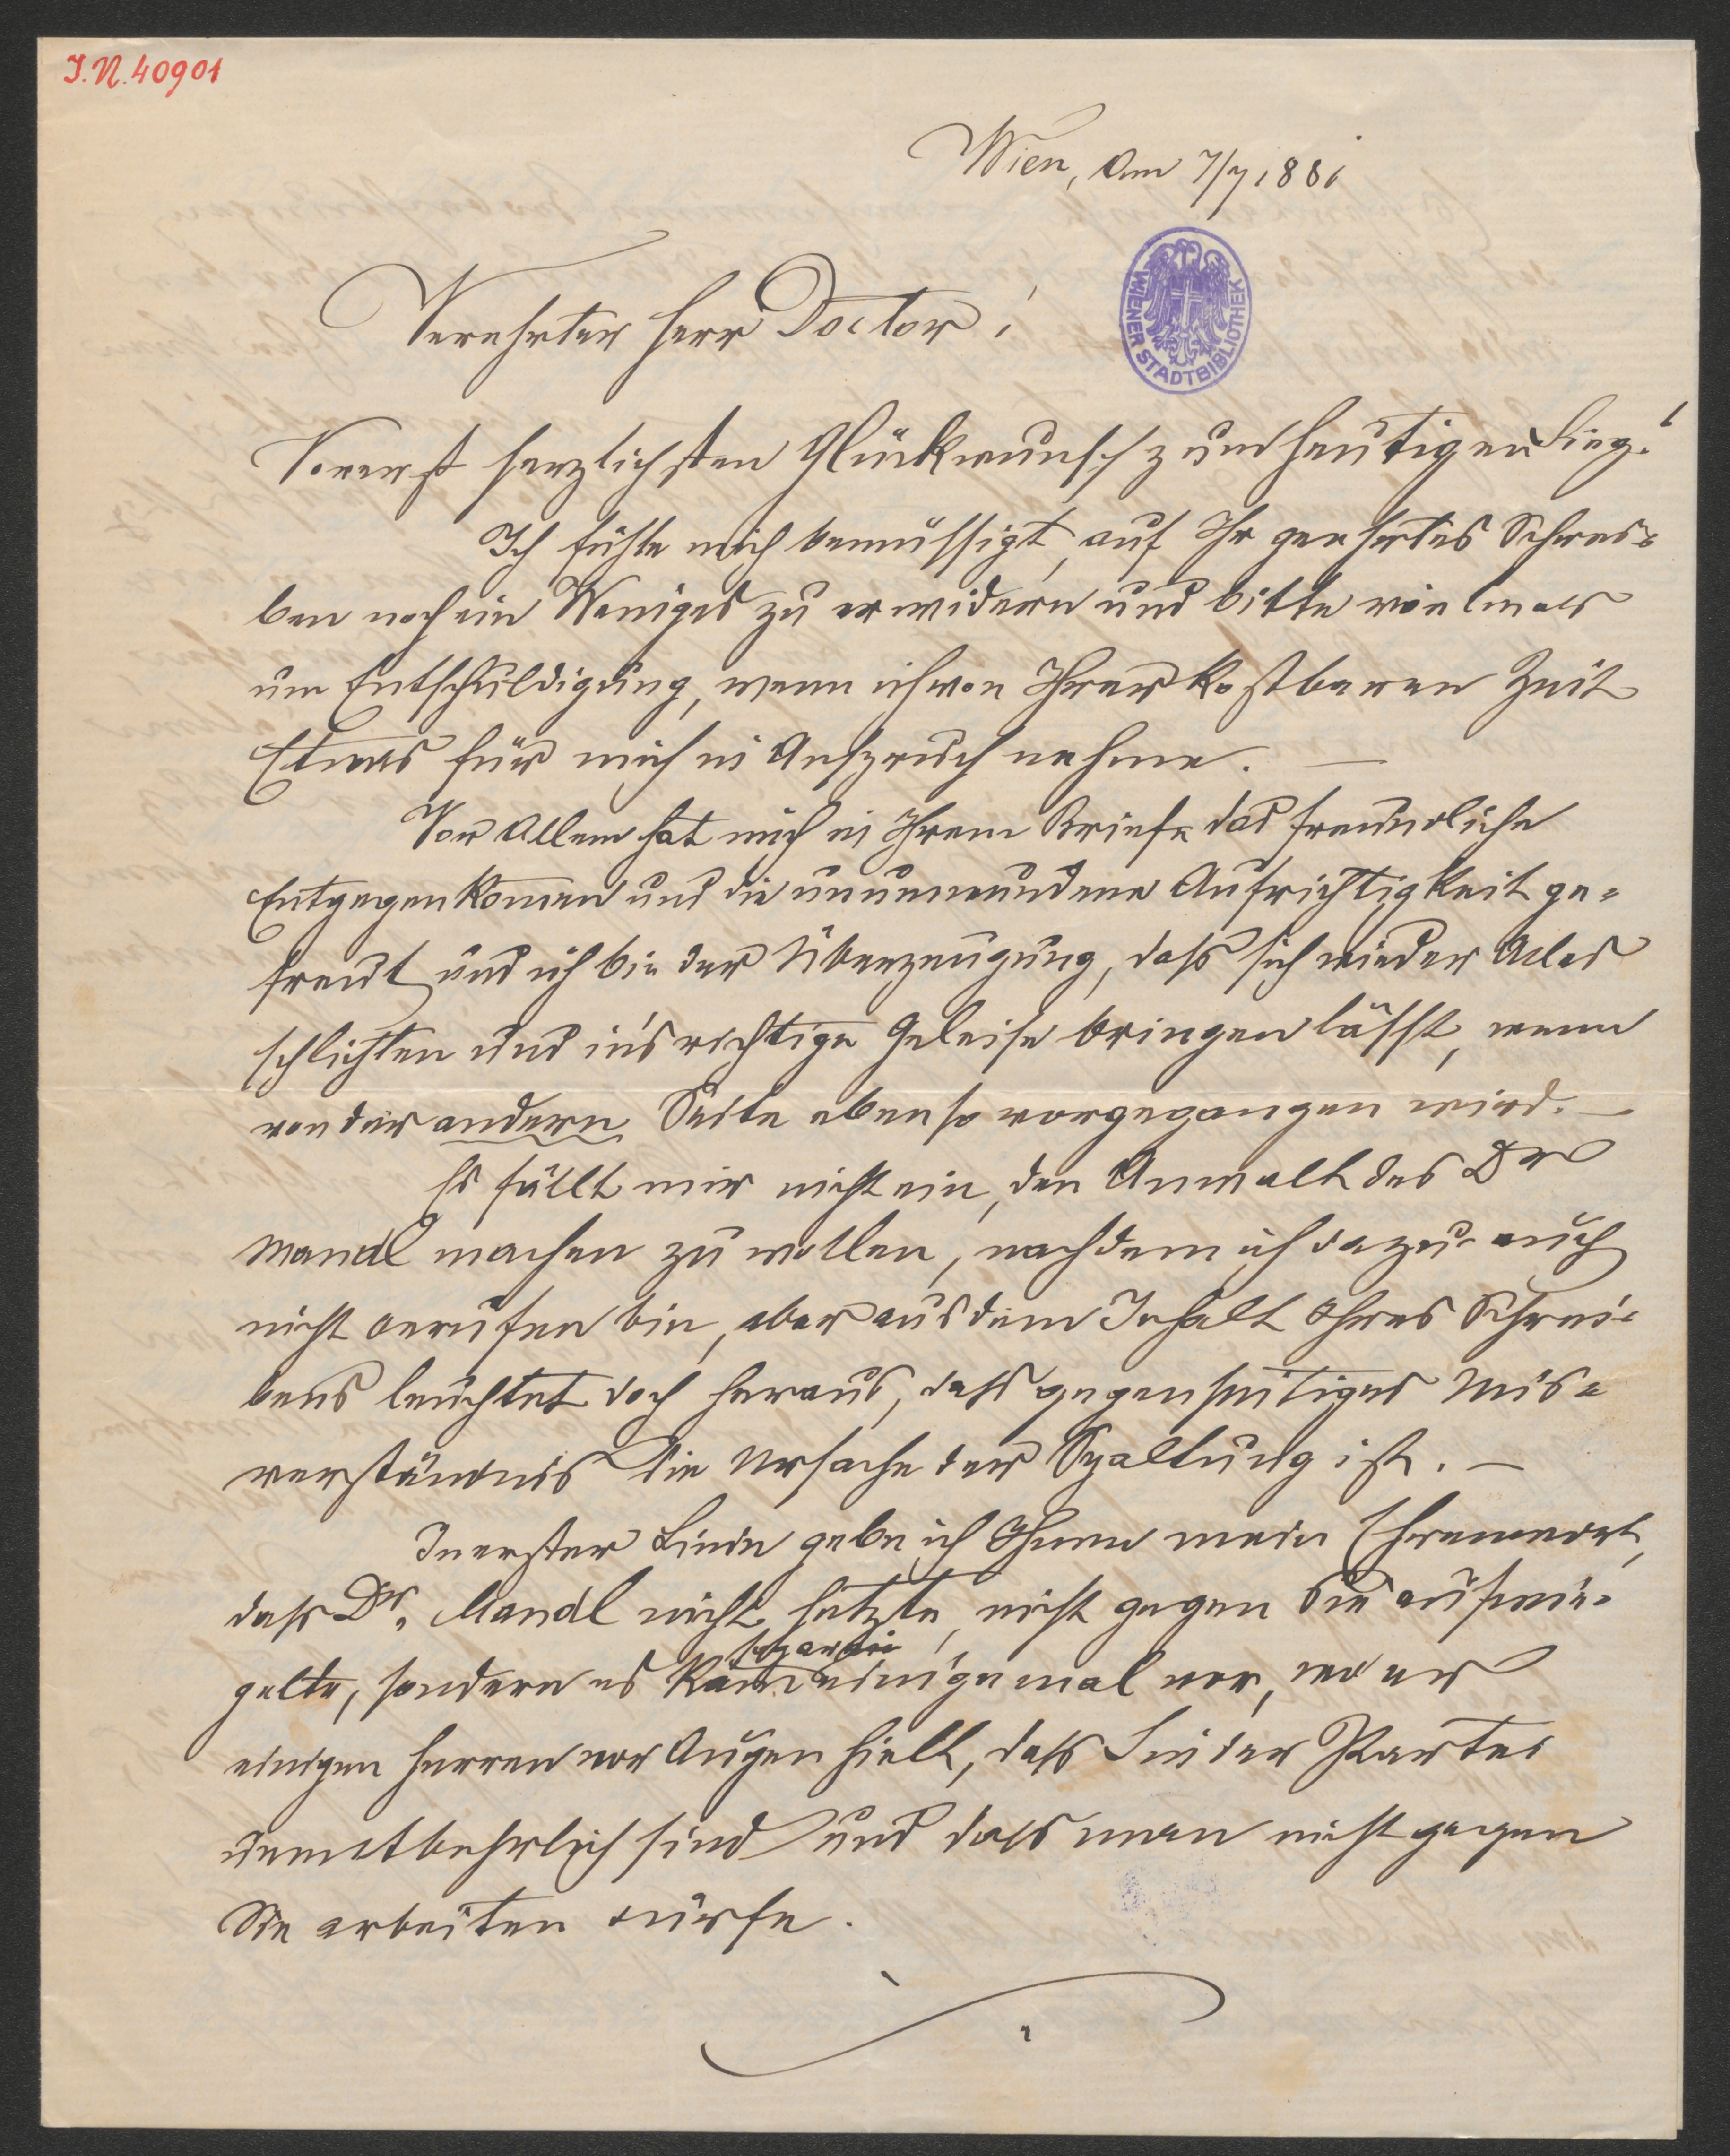 I.N. 40901
Wien, Am 7/7 1881
WIENER STADTBIBLIOTHEK
Verehrter Herr Doctor!
Vorerst herzlichsten Glückwunsch zum heutigen Sieg!
Ich fühle mich bemüssigt, auf Ihr geehrtes Schrei-
ben noch ein Weniges zu erwidern und bitte vielmals
um Entschuldigung, wenn ich von Ihrer kostbaren Zeit
Etwas für mich in Anspruch nehme. —
Vor Allem hat mich in Ihrem Briefe das freundliche
Entgegenkomen und die unumwundene Aufrichtigkeit ge-
freut und ich bin der Überzeugung, daß sich wieder Alles
schlichten und in's richtige Geleise bringen läßt, wenn
von der andern Seite ebenso vorgegangen wird. —
Es fällt mir nicht ein, den Anwalt des Dr
Mandl machen zu wollen, nachdem ich dazu auch
nicht berufen bin, aber aus dem Inhalt Ihres Schrei-
bens leuchtet doch heraus, daß gegenseitiges Mis-
verständnis die Ursache der Spaltung ist. —
In erster Linie gebe ich Ihnen mein Ehrenwort,
daß Dr. Mandl nicht hetzte, nicht gegen Sie aufwie-
sogar
gelte, sondern es kam einigemal vor, wo er
einigen Herren vor Augen hielt, daß Sie der Partei
unentbehrlich sind und daß man nicht gegen
Sie arbeiten dürfe.